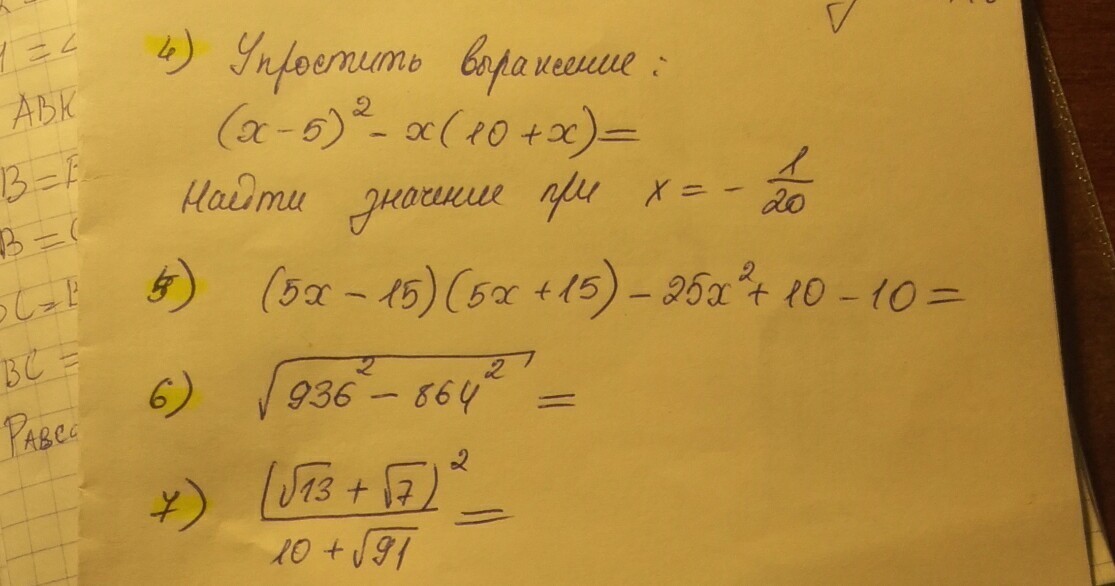 1 = 2
АВК
4) Упростить выражение:
(x - 5)² - x(10 + x) =
Найти значение при x = - 1/20
5) (5x - 15)(5x + 15) - 25x² + 10 - 10 =
BC =
6) √(936² - 864²) =
7) (√13 + √7)² / (10 + √91) =